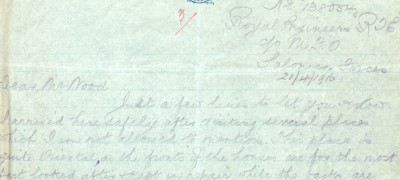 No. 138004
3/
Royal Engineers R.T.E
c/o M.F.O
Salonica Forces
21/4/1916
Dear Mr Wood
Just a few lines to let you know
I arrived here safely after visiting several places
which I am not allowed to mention. The place is
quite Oriental, as the fronts of the houses are for the most
part looked after & kept in repair while the backs are